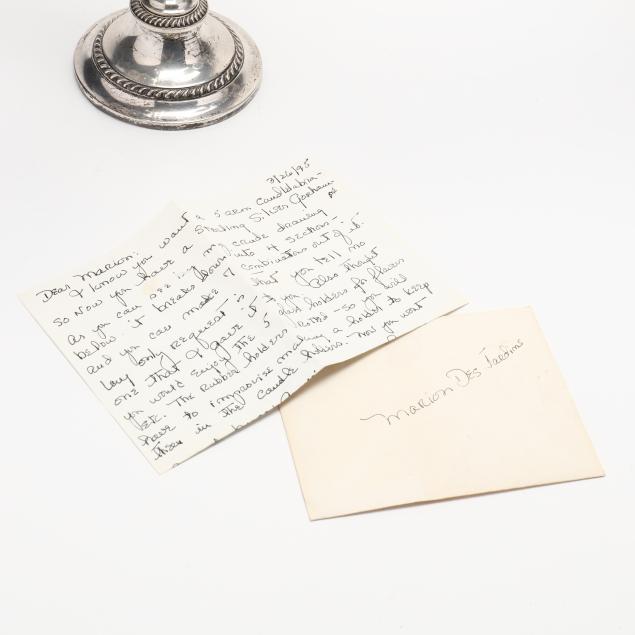 3/26/95
Dear Marion:
I know you want a 5 arm candelabra -
So now you have a Sterling Silver Gorham -
As you can see in my crude drawing
below it breaks down into 4 sections -
and you can make 7 combinations out of it.
My only request is that you tell no
one that I gave it to you. Also thought
you would enjoy the 5 holders for flowers
etc. The rubber holders - so you
have to improvise making a holder to keep
them in the candle holders. Now you want
Marion Des Jardins